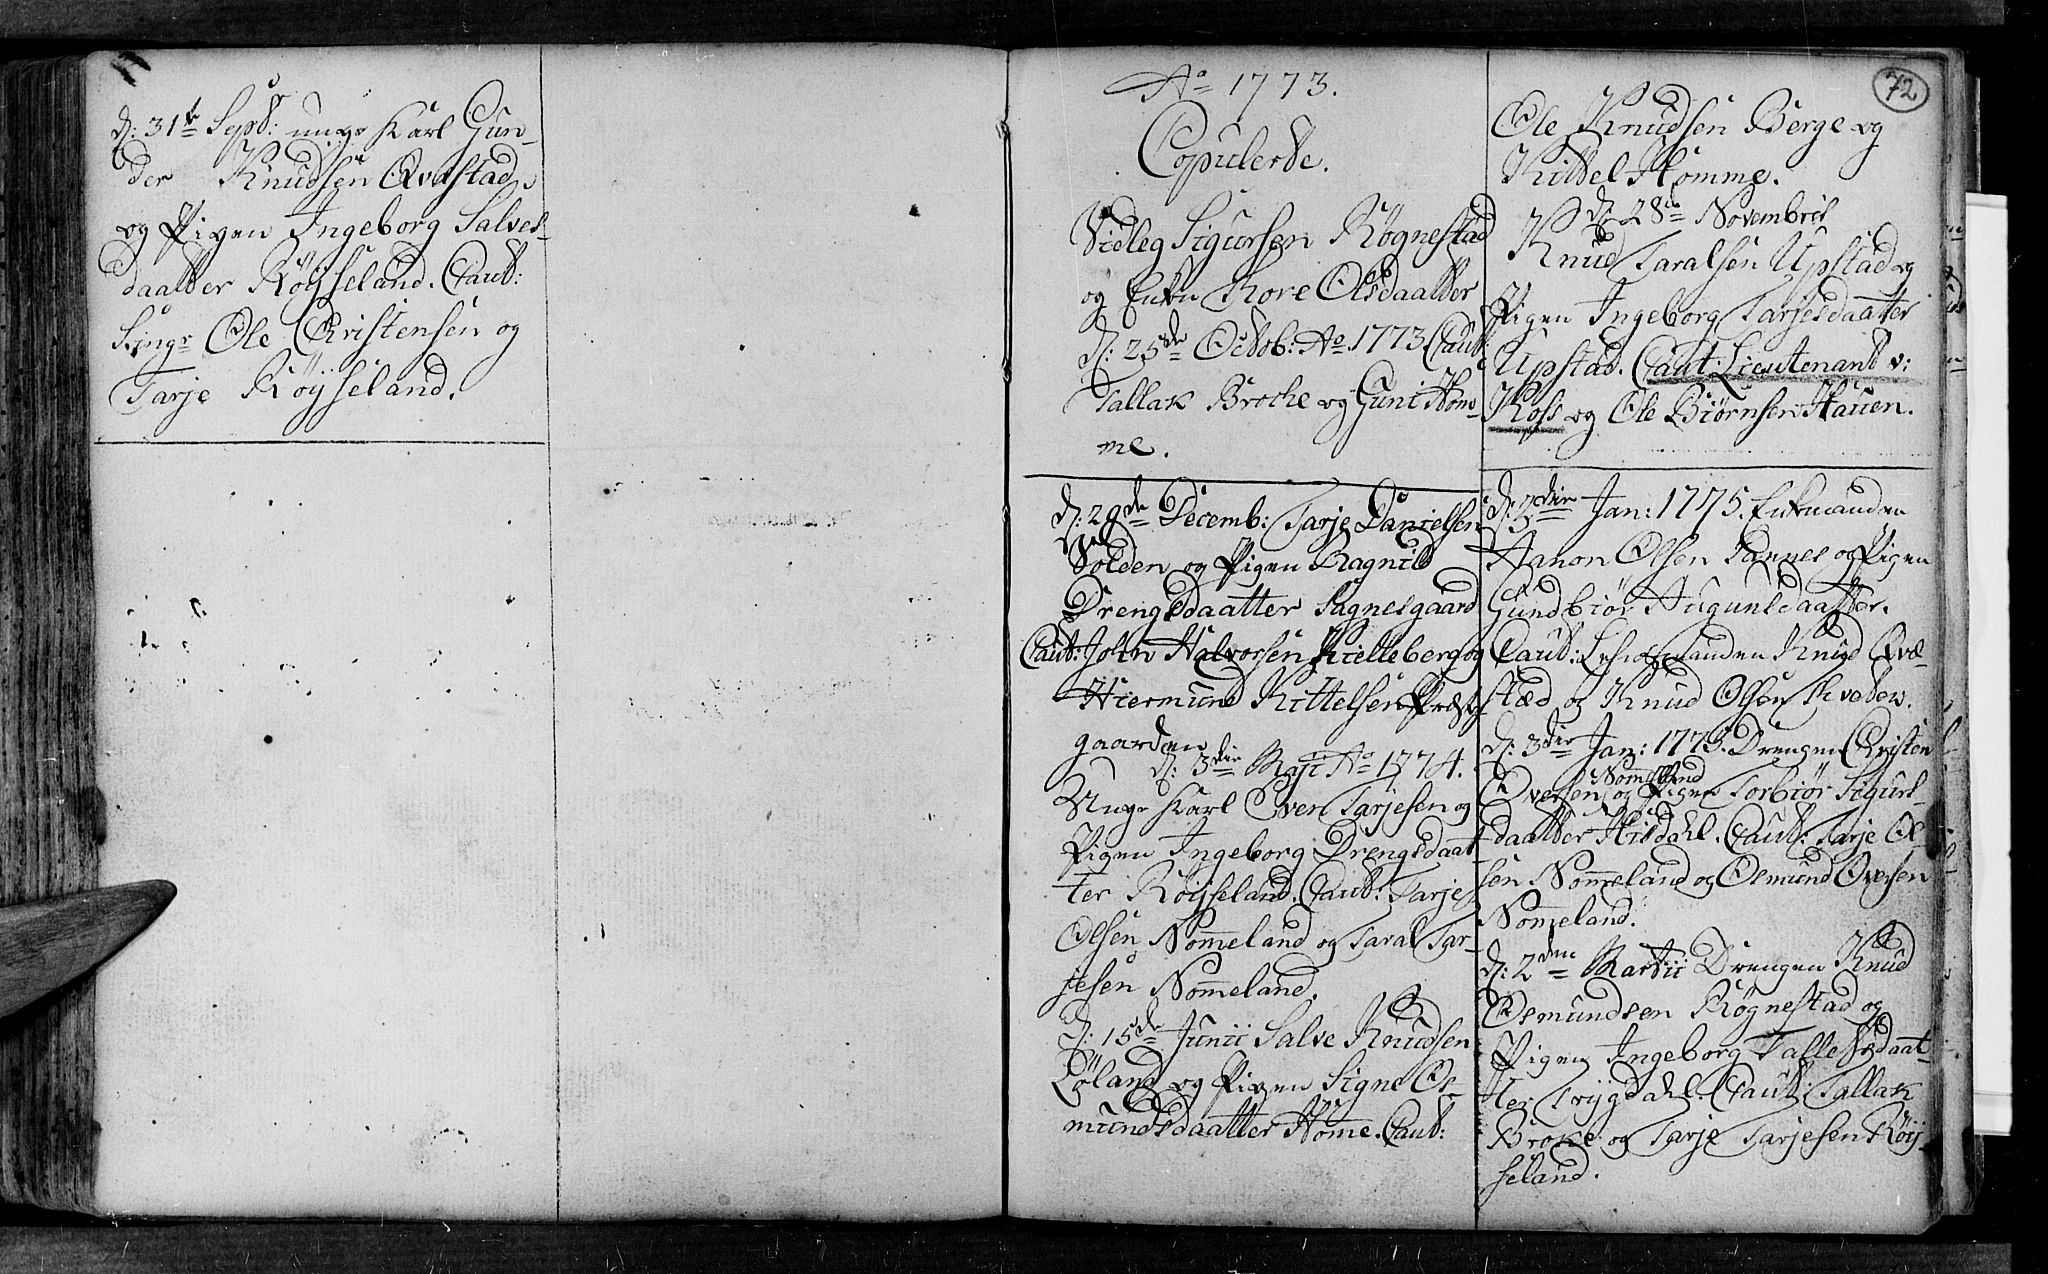 d: 31te Septb: unge Karl Gun-
der Knudsen Qvastad
og Pigen Ingeborg Salves-
daatter Röysseland. Caut:
Sr. Ole Christensen og
Tarje Röysseland.
Ao 1773.
Copulerde.
Vidleg Sigursen Røgnestad
og Enken Tore Olsdaatter
d: 25de Octob: Ao 1773. Caut:
Tallak Broche og Guni Hom-
me.
d: 29de Decemb: Tarje Danielsen
Volden og Pigen Ragnild
Drengsdaatter Sagnesgaard
Caut: John Halvorsen Kielleberg og
Hiermund Kittelsen Præst-
gaarden
d: 3die Maji Ao 1774.
Unge Karl Even Tarjesen og
Pigen Ingeborg Drengsdaat-
ter Röysseland. Caut: Tarje
Olsen Nom̄eland og Taral Tar-
jesen Nom̄eland.
d: 15de Junii Salve Knudsen
Løland og Pigen Signe Os-
mundsdaatter Hom̄e. Caut:
72
Ole Knudsen Berge og
Kittel Homme.
d: 28de Novembris
Knud Taralsen Upstad og
Pigen Ingeborg Tarjesdaatter
Upstad. Caut: Lieutenant v:
Koss og Ole Biørnsen Hauen.
d: 3die Jan: 1775. Enkemanden
Aanon Olsen Rannes og Pigen
Gundbiør Augunsdaatter.
Caut: Lehnsmanden Knud Qvæ-
stæd og Knud Olsen Tveden.
d: 3die Jan: 1775. Drengen Cristen
Nom̄eland
Oversen og Pigen Torbiør Sigurs-
daatter Hisdahl. Caut: Tarje Ol-
sen Nom̄eland og Osmund Oversen
Nom̄eland.
d: 2den Martii Drengen Knud
Osmundsen Røgnestad og
Pigen Ingeborg Tallefsdaat-
ter Trygdahl. Caut: Tallak
Broke og Tarje Tarjesen Röij-
seland.